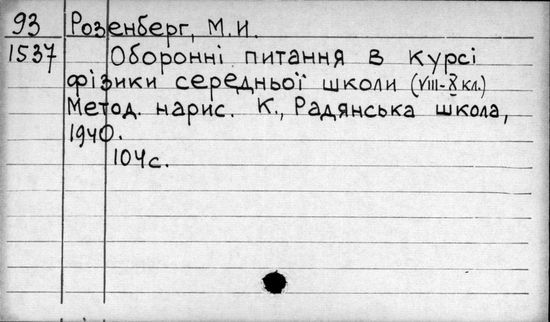 93 Розенберг, М.И.
1537 Оборонні питання в курсі
фізики середньої школи (VIII-X кл.)
Метод. нарис. К., Радянська школа,
1940.
104с.